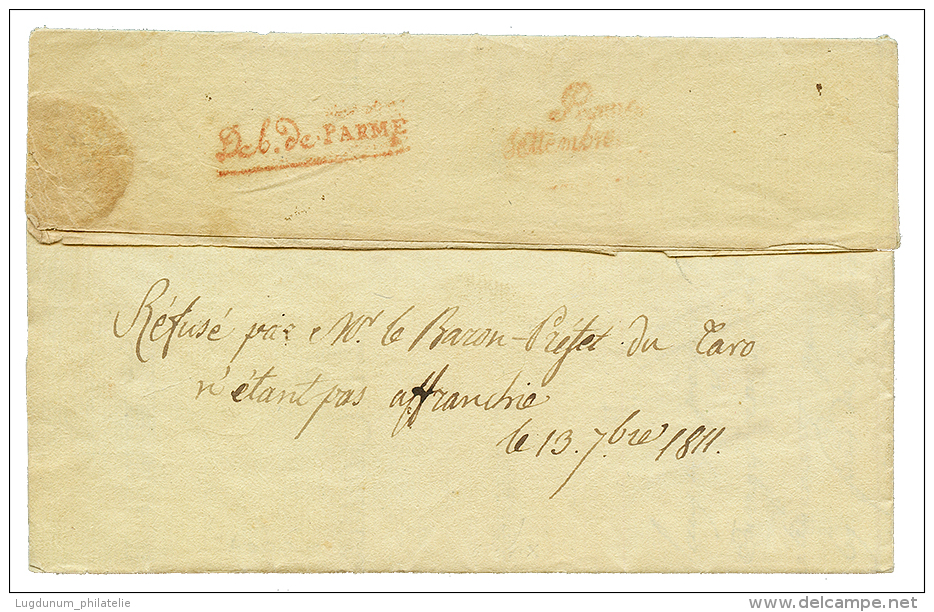 Deb. de PARME
Settembre
Réfusé par Mr. le Baron-Préfet du Taro
n'étant pas affranchie
le 13. 7bre 1811.
Lugdunum_philatelie
delcampe.net